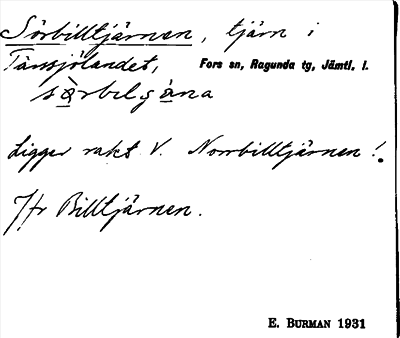 Sörbilltjärnen, tjärn i
Tänssjölandet, Fors sn, Ragunda tg, Jämtl. l.
Ligger rakt V. Norrbilltjärnen!
Jfr Billtjärnen.
E. BURMAN 1931